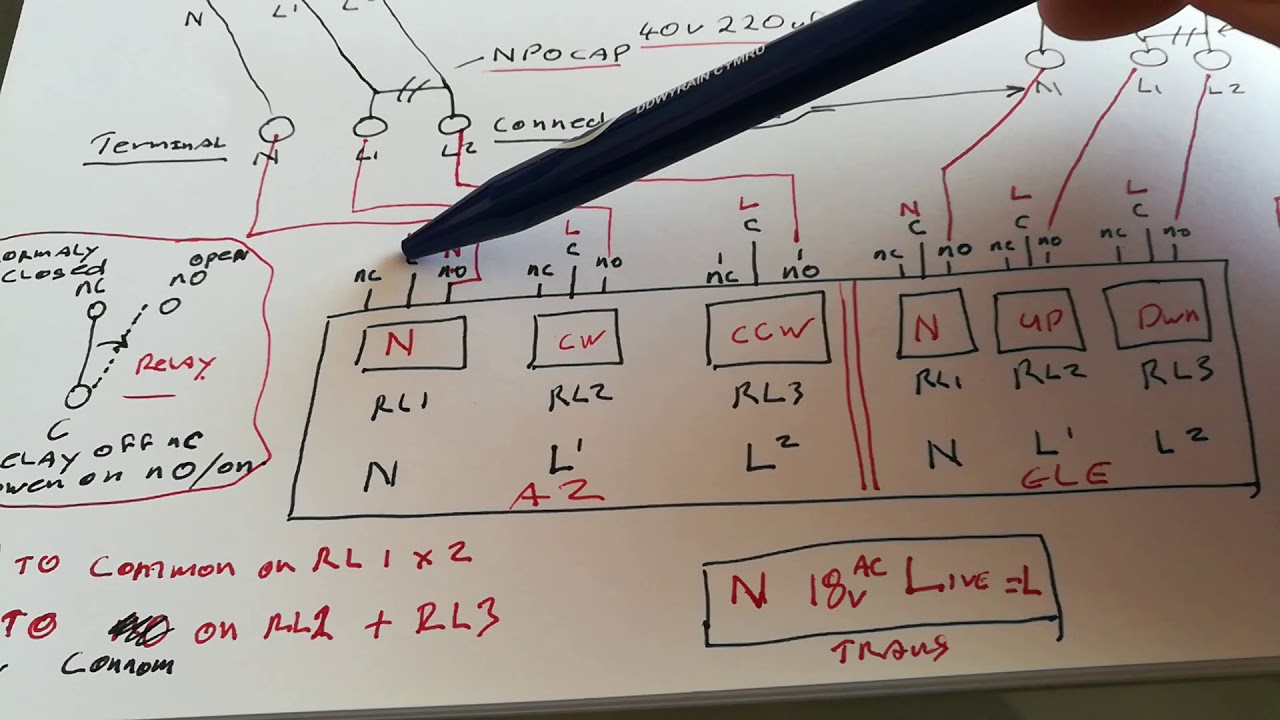 N L1
40V 220
NPOCAP
DDWYRAIN CYMRU
Terminal
Connec
N L1 L2
N1 L1 L2
L L N L L
C C C C C
nc N no nc no nc no nc no nc no nc no
ormaly
closed
nc
open
no
Relay
C
elay off nc
ower on no/on
N CW CCW N UP Dwn
RL1 RL2 RL3 RL1 RL2 RL3
N L1 L2 N L1 L2
AZ ELE
TO Common on RL1 x 2
TO on RL2 + RL3
Connom
N 18v AC Live = L
TRANS